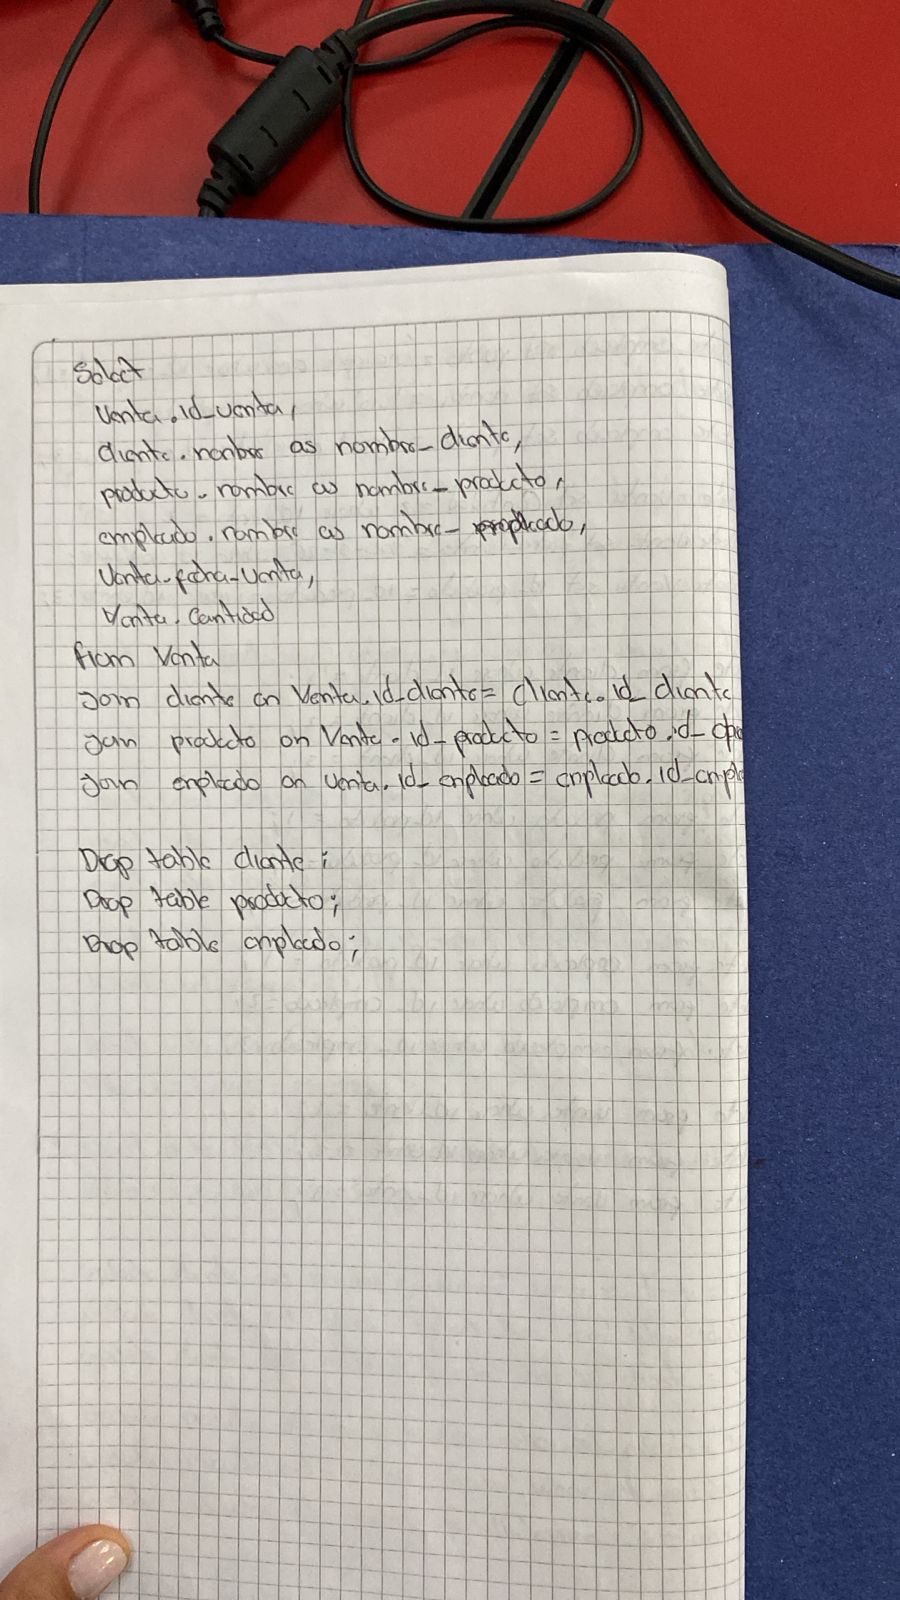 Select
Venta.id_venta,
cliente.nombre as nombre_cliente,
producto.nombre as nombre_producto,
empleado.nombre as nombre_empleado,
Venta.fecha_venta,
Venta.Cantidad
from Venta
Join cliente on Venta.id_cliente = cliente.id_cliente
Join producto on Venta.id_producto = producto.id_
Join empleado on venta.id_empleado = empleado.id_emple
Drop table cliente;
Drop table producto;
Drop table empleado;